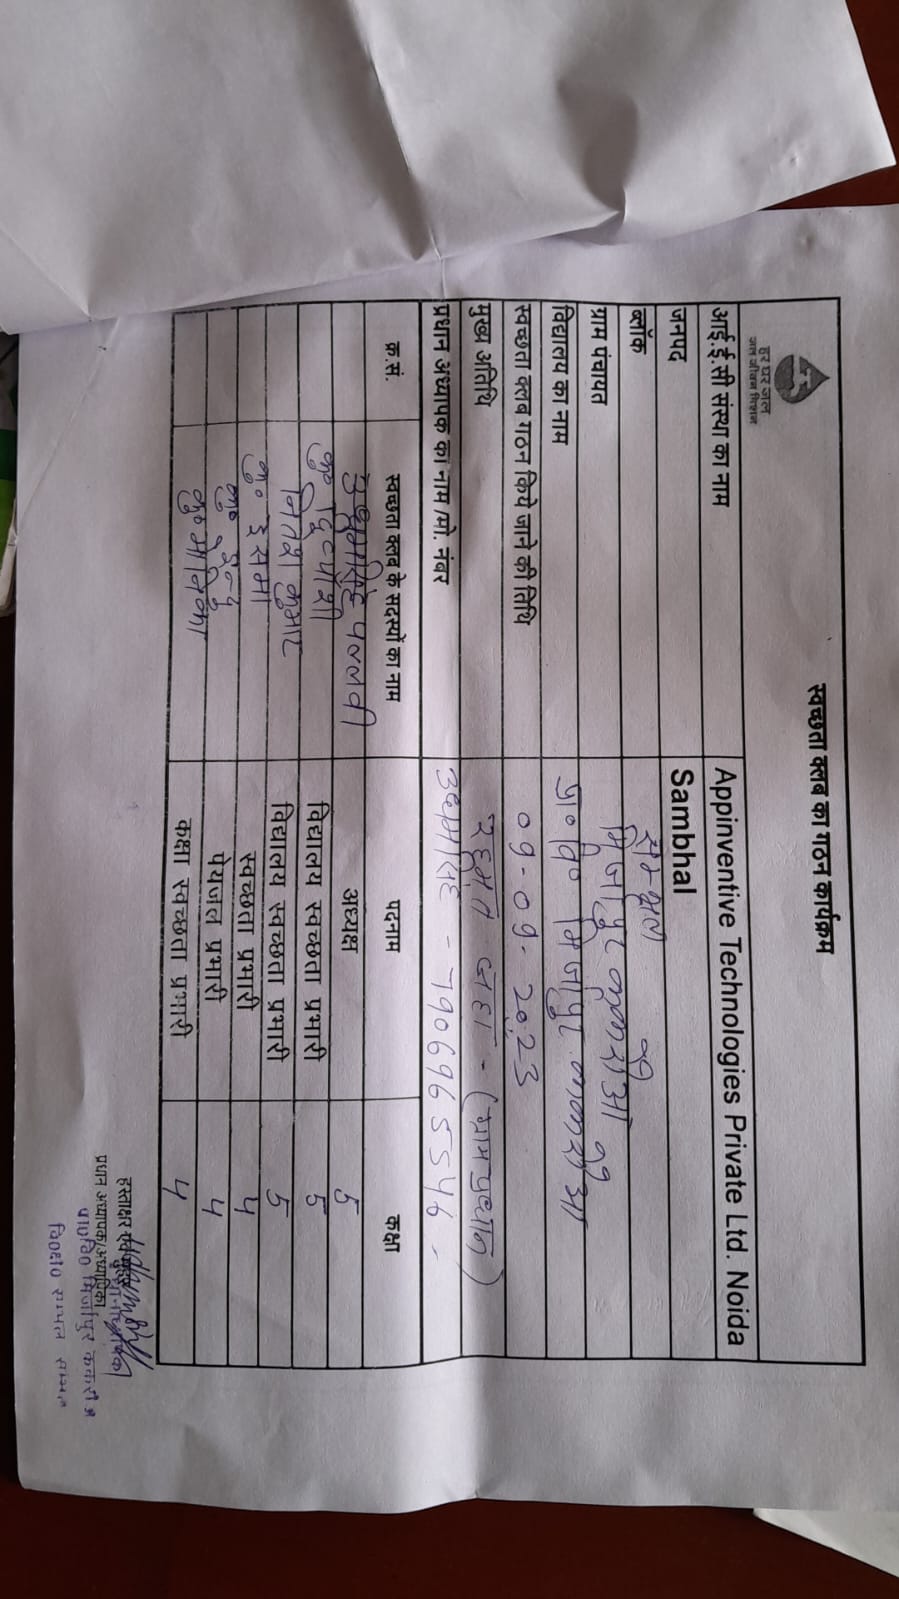 स्वच्छता क्लब का गठन कार्यक्रम
हर घर जल
जल जीवन मिशन
आई.ई.सी संस्था का नाम Appinventive Technologies Private Ltd. Noida
जनपद Sambhal
ब्लॉक सम्भल
ग्राम पंचायत मिर्जापुर
विद्यालय का नाम प्रा० वि० मिर्जापुर
स्वच्छता क्लब गठन किये जाने की तिथि 09-09-2023
मुख्य अतिथि रहमत जहां - (ग्राम प्रधान)
प्रधान अध्यापक का नाम /मो. नंबर - 7906965546
क्र.सं. स्वच्छता क्लब के सदस्यों का नाम पदनाम कक्षा
पल्लवी अध्यक्ष 5
कु० विद्यालय स्वच्छता प्रभारी 5
कुमार विद्यालय स्वच्छता प्रभारी 5
कु० स्वच्छता प्रभारी 4
कु० पेयजल प्रभारी 4
कु० कक्षा स्वच्छता प्रभारी 4
हस्ताक्षर एवं मुहर
प्रधान अध्यापक/अध्यापिका
प्रा०वि० मिर्जापुर
वि०क्षे० सम्भल